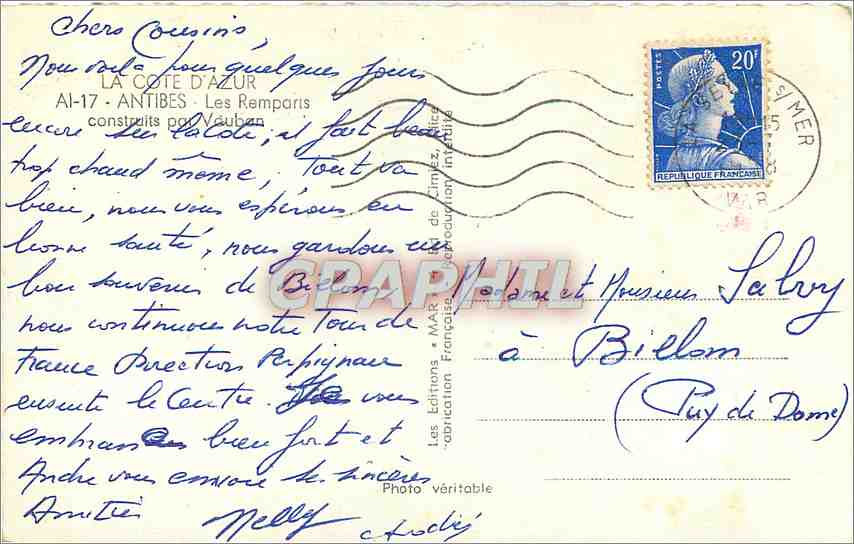 Chers Cousins,
Nous voilà pour quelques jours
LA COTE D'AZUR
AI-17 - ANTIBES - Les Remparts
construits par Vauban
encore sur la côte, il fait beau
trop chaud même, Tout va
bien, nous vous espérons en
bonne santé, nous gardons un
bon souvenir de Billom
nous continuons notre Tour de
France Direction Perpignan
ensuite le Centre. vous
embrasse bien fort et
André vous envoie ses sincères
Amitiés Nelly André
Photo véritable
Les Editions "MAR" Bd de Cimiez, Nice
Fabrication Française Reproduction interdite
POSTES
20F
REPUBLIQUE FRANÇAISE
S/MER
VAR
CPAPHIL
Madame et Monsieur Salvy
à Billom
(Puy de Dome)